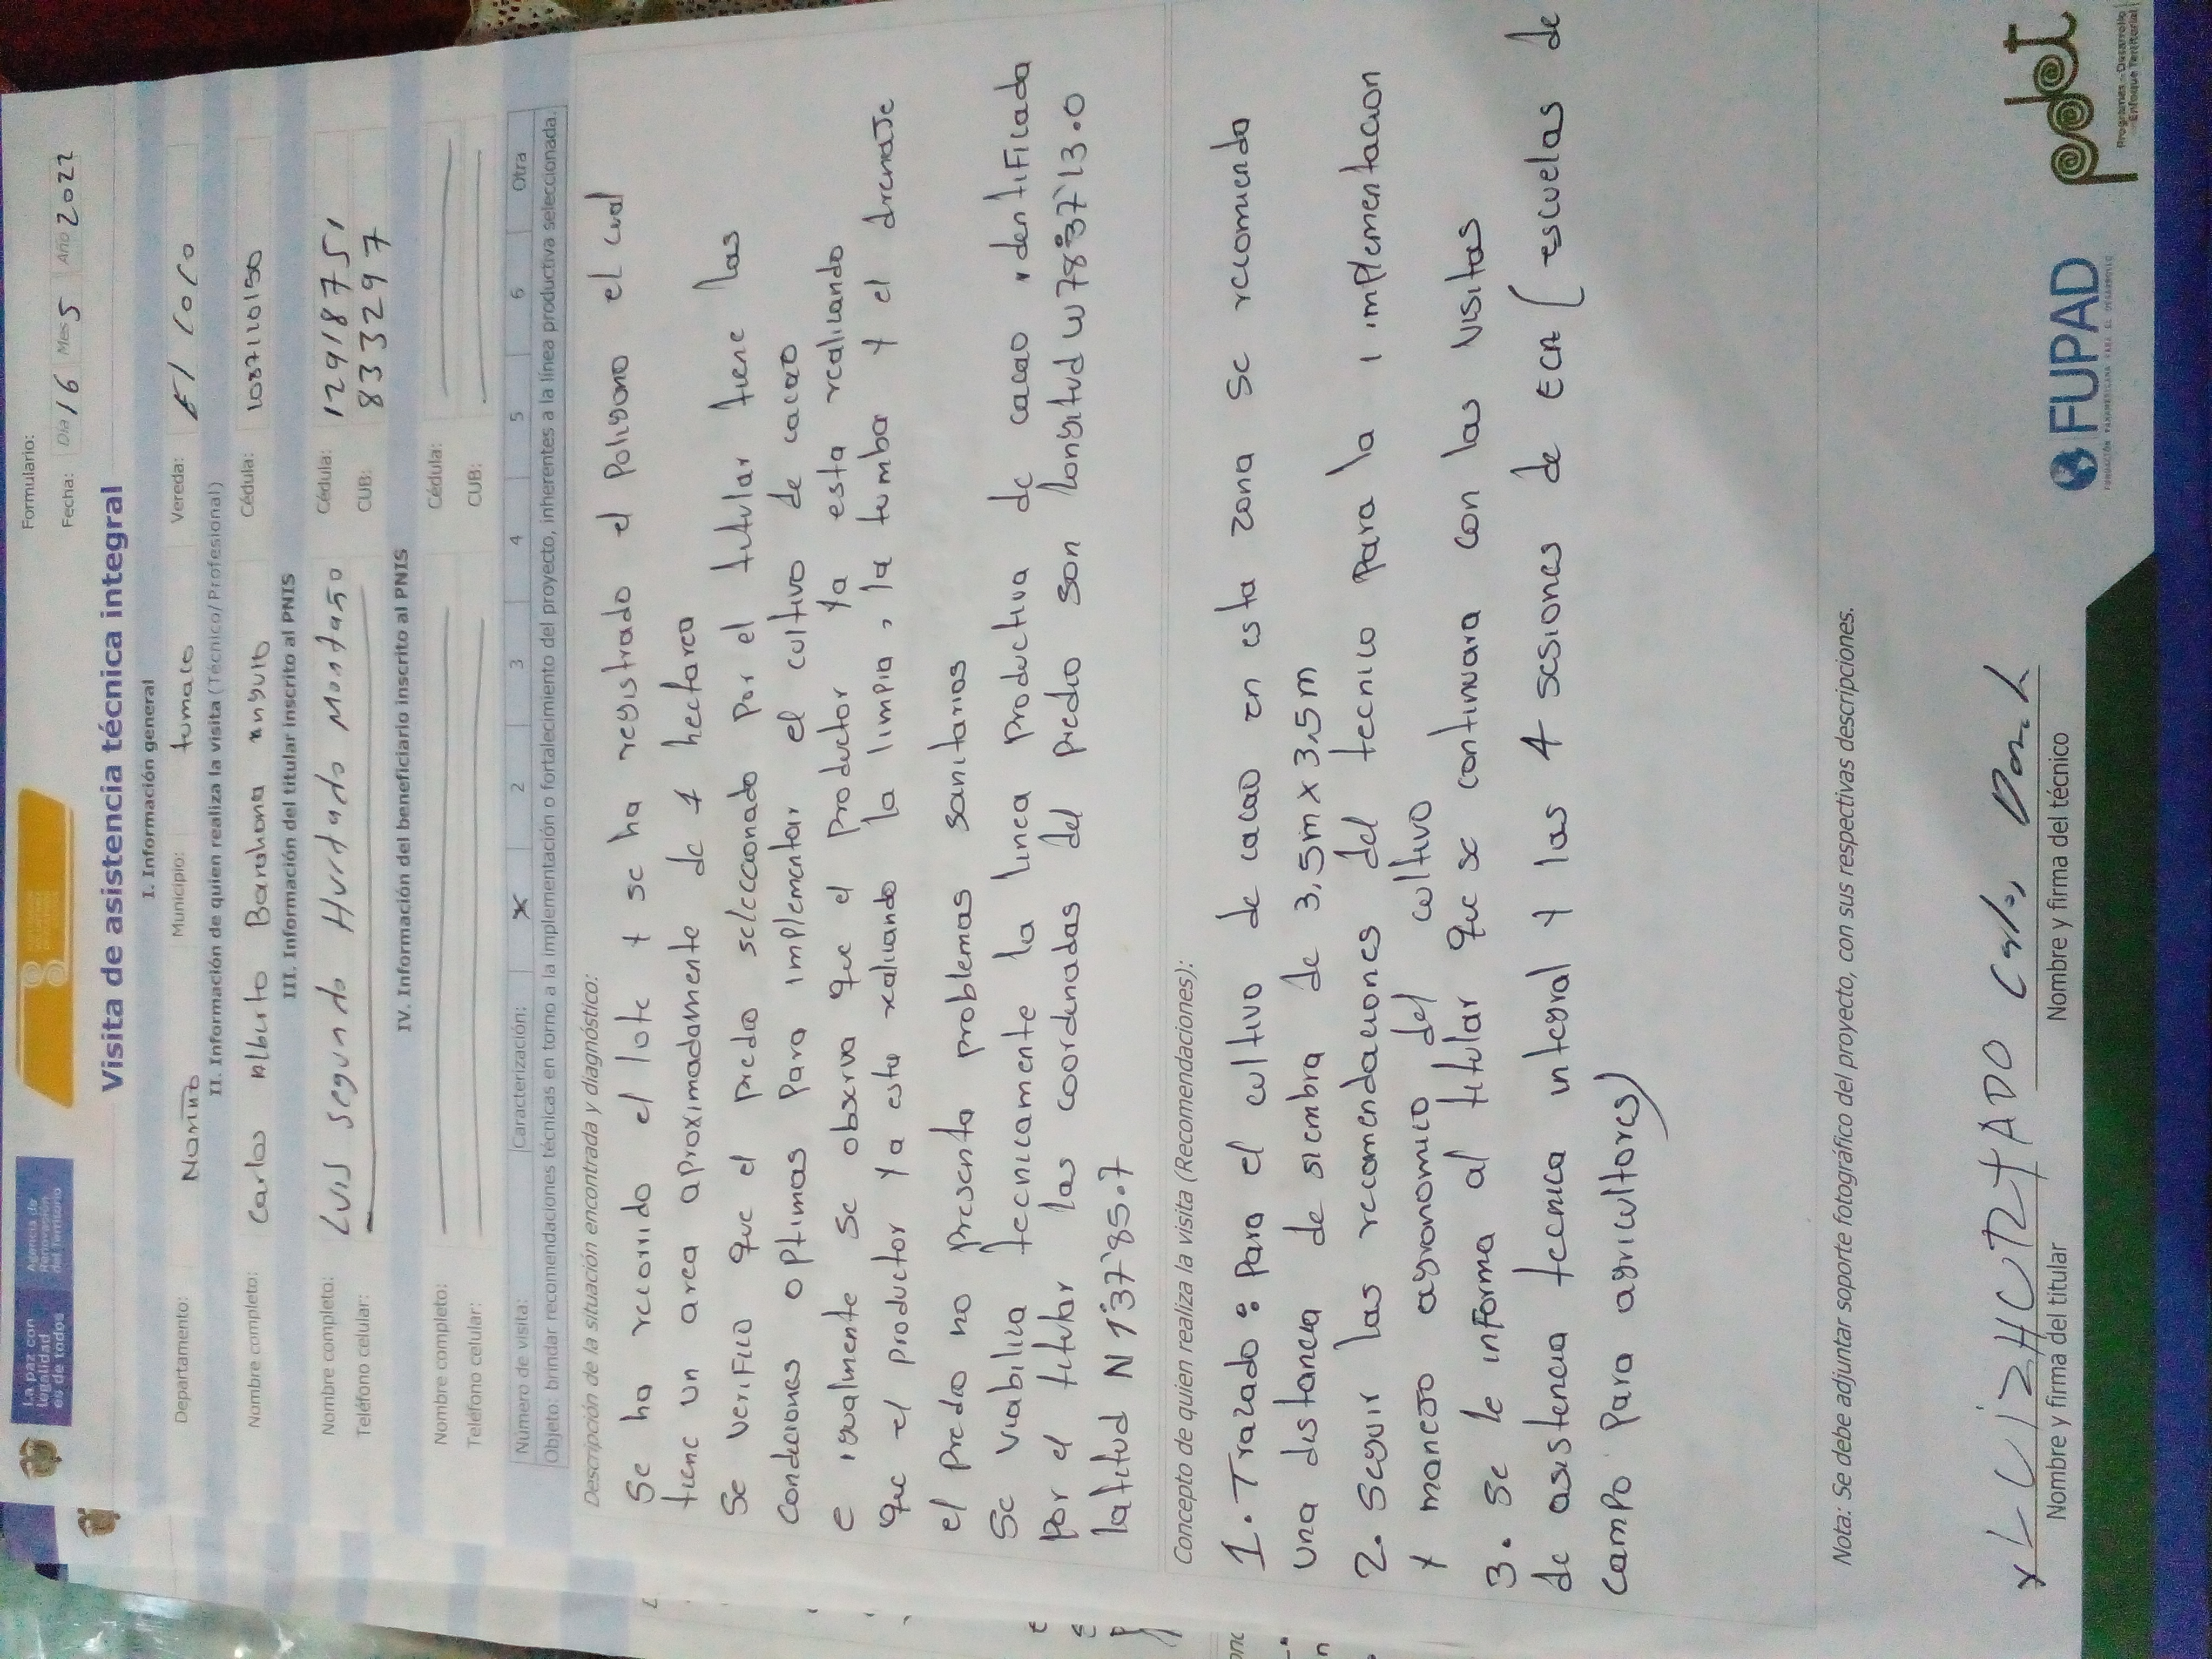 La paz con
legalidad
es de todos
Agencia de
Renovación
del Territorio
Formulario:
Fecha: Día 16 Mes 5 Año 2022
Visita de asistencia técnica integral
I. Información general
Departamento: Nariño Municipio: tumaco Vereda: El Coco
II. Información de quien realiza la visita (Técnico/Profesional)
Nombre completo: Carlos Alberto Barahona Angulo Cédula: 1087110150
III. Información del titular inscrito al PNIS
Nombre completo: Luis Segundo Hurtado Montaño Cédula: 12918751
Teléfono celular: CUB: 8333297
IV. Información del beneficiario inscrito al PNIS
Nombre completo: Cédula:
Teléfono celular: CUB:
Número de visita: Caracterización: X 2 3 4 5 6 Otra
Objeto: brindar recomendaciones técnicas en torno a la implementación o fortalecimiento del proyecto, inherentes a la línea productiva seleccionada.
Descripción de la situación encontrada y diagnóstico:
Se ha recorrido el lote y se ha registrado el Poligono el cual
tiene un area aproximadamente de 1 hectarea
Se verifico que el predio seleccionado por el titular tiene las
condiciones optimas para implementar el cultivo de cacao
e igualmente se observa que el productor ya esta realicando
que el productor ya esta realicando la limpia, la tumba y el drenaje
el predio no presenta problemas sanitarios
Se viabilica tecnicamente la linea productiva de cacao identificada
por el titular las coordenadas del predio son longitud W78°37'13.0
latitud N 1°37'85.7
Concepto de quien realiza la visita (Recomendaciones):
1. Trazado: Para el cultivo de cacao en esta zona se recomienda
una distancia de siembra de 3,5m x 3,5m
2. Seguir las recomendaciones del tecnico para la implementacion
y manejo agronomico del cultivo
3. Se le informa al titular que se continuara con las visitas
de asistencia tecnica integral y las 4 sesiones de ECA (escuelas de
campo para agricultores)
Nota: Se debe adjuntar soporte fotográfico del proyecto, con sus respectivas descripciones.
Nombre y firma del titular Nombre y firma del técnico
FUPAD
FUNDACIÓN PANAMERICANA PARA EL DESARROLLO
pdet
Programas de Desarrollo
con Enfoque Territorial